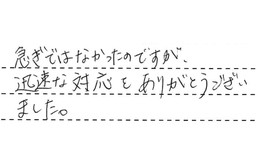 急ぎではなかったのですが、
迅速な対応をありがとうござい
ました。